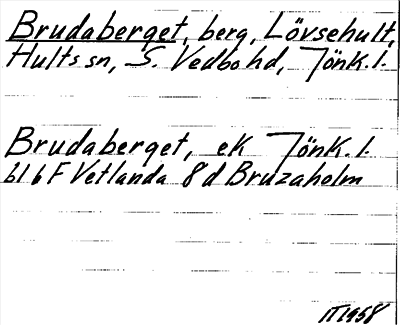 Brudaberget, berg, Lövsehult,
Hults sn, S. Vedbo hd, Jönk. l.
Brudaberget, ek Jönk. l.
bl 6 F Vetlanda 8 d Bruzaholm
1958